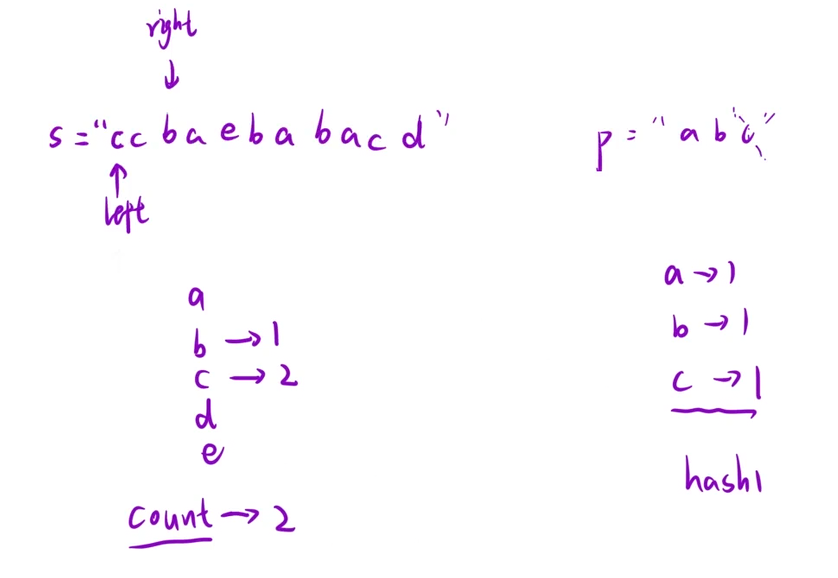 right
↓
s = "ccbaebabacd"
p = "abc"
↑
left
a
b → 1
c → 2
d
e
count → 2
a → 1
b → 1
c → 1
hash1